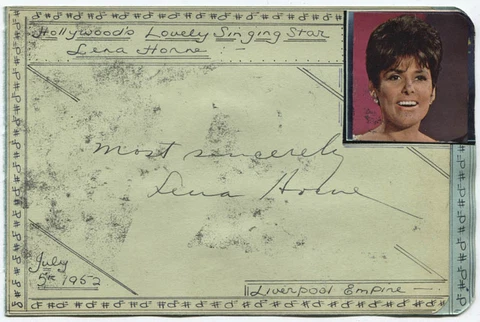 Hollywood's Lovely Singing Star
Lena Horne :—
Most sincerely
Lena Horne
July
5TH 1952
Liverpool Empire —